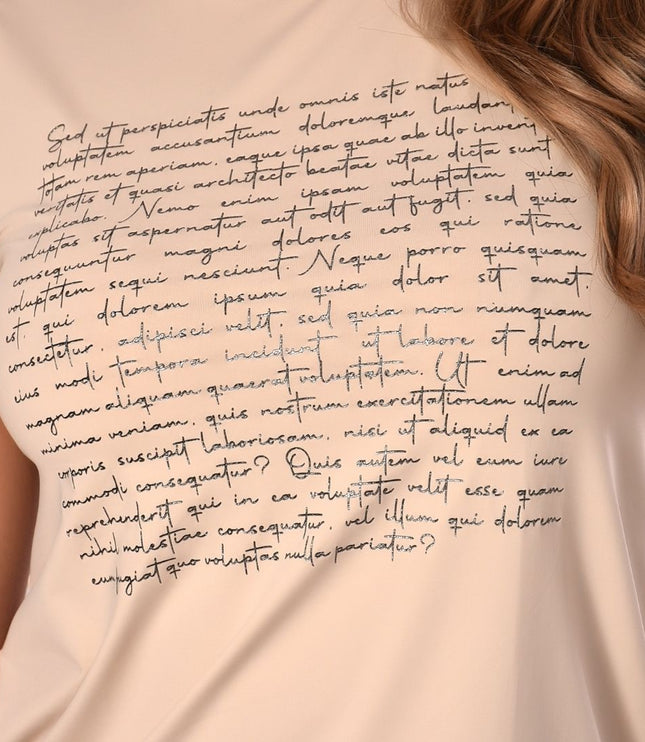 Sed ut perspiciatis unde omnis iste natus
voluptatem accusantium doloremque laudant
totam rem aperiam, eaque ipsa quae ab illo invent
veritatis et quasi architecto beatae vitae dicta sunt
explicabo. Nemo enim ipsam voluptatem quia
voluptas sit aspernatur aut odit aut fugit, sed quia
consequuntur magni dolores eos qui ratione
voluptatem sequi nesciunt. Neque porro quisquam
est, qui dolorem ipsum quia dolor sit amet,
consectetur, adipisci velit, sed quia non numquam
eius modi tempora incidunt ut labore et dolore
magnam aliquam quaerat voluptatem. Ut enim ad
minima veniam, quis nostrum exercitationem ullam
corporis suscipit laboriosam, nisi ut aliquid ex ea
commodi consequatur? Quis autem vel eum iure
reprehenderit qui in ea voluptate velit esse quam
nihil molestiae consequatur, vel illum qui dolorem
eum fugiat quo voluptas nulla pariatur?